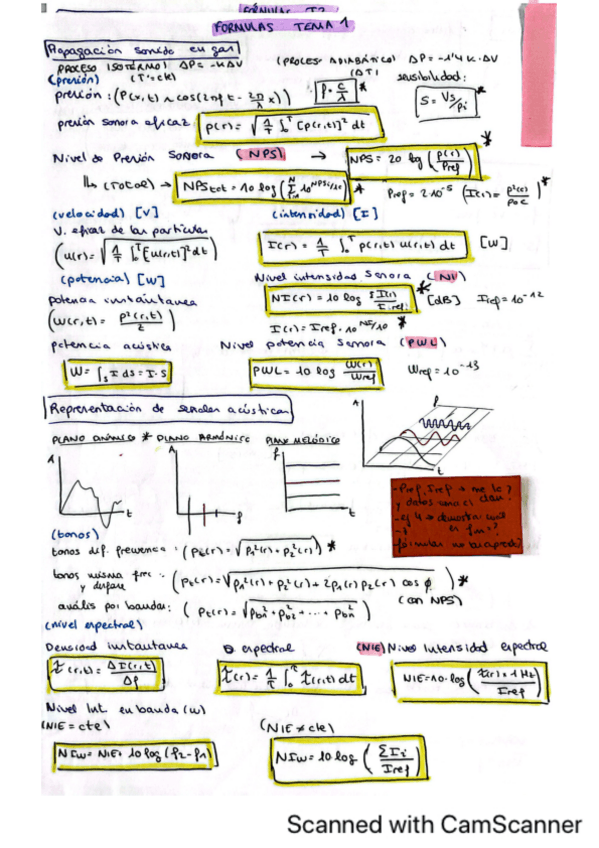 FORMULAS TEMA 1
Propagación sonido en gas
(PROCESO ADIABÁTICO) ΔP = -1'4 K · ΔV
PROCESO ISOTÉRMO) ΔP = -KΔV
(presión) (T = ctk) (ΔT) sensibilidad:
presión: (P(x,t) ~ cos(2πft - 2π/λ x)) f = c/λ * S = Vs/Pi *
presión sonora eficaz: P(r) = √(1/T ∫₀ᵀ [p(r,t)]² dt)
Nivel de Presión Sonora (NPS) → NPS = 20 log (p(r)/Pref) *
(TOTAL) → NPStot = 10 log (Σ 10^NPSi/10) * Pref = 2·10⁻⁵ (I(r) = p²(r)/ρ₀c) *
(velocidad) [V] (intensidad) [I]
V. eficaz de las partículas
(u(r) = √(1/T ∫₀ᵀ [u(r,t)]² dt) I(r) = 1/T ∫₀ᵀ p(r,t) u(r,t) dt [W]
(potencia) [W] Nivel intensidad Sonora (NI)
potencia instantanea NI(r) = 10 log I(r)/Iref * [dB] Iref = 10⁻¹²
(W(r,t) = p²(r,t)/z) I(r) = Iref · 10^NI/10 *
potencia acústica Nivel potencia Sonora (PWL)
W = ∫s I ds = I·S PWL = 10 log W(r)/Wref Wref = 10⁻¹³
Representación de señales acústicas
PLANO DINÁMICO * PLANO ARMÓNICO PLANO MELÓDICO
A t A f f t A f t
(tonos)
tonos dif. frecuencia: (Pt(r) = √(p₁²(r) + p₂²(r))) *
tonos misma frec. y desfase: (Pt(r) = √(p₁²(r) + p₂²(r) + 2p₁(r)p₂(r) cos φ) *
análisis por bandas: (Pt(r) = √(pb₁² + pb₂² + ... + pbn²) (con NPS)
(nivel espectral)
Densidad instantanea espectral (NIE) Nivel Intensidad espectral
(r,t) = ΔI(r,t)/Δf (r) = 1/T ∫₀ᵀ (r,t) dt NIE = 10·log ((r) · 1 Hz/Iref)
Nivel Int. en banda (w)
(NIE = cte) (NIE ≠ cte)
NIw = NIE + 10 log (f₂ - f₁) NIw = 10 log (ΣIi/Iref)
Scanned with CamScanner